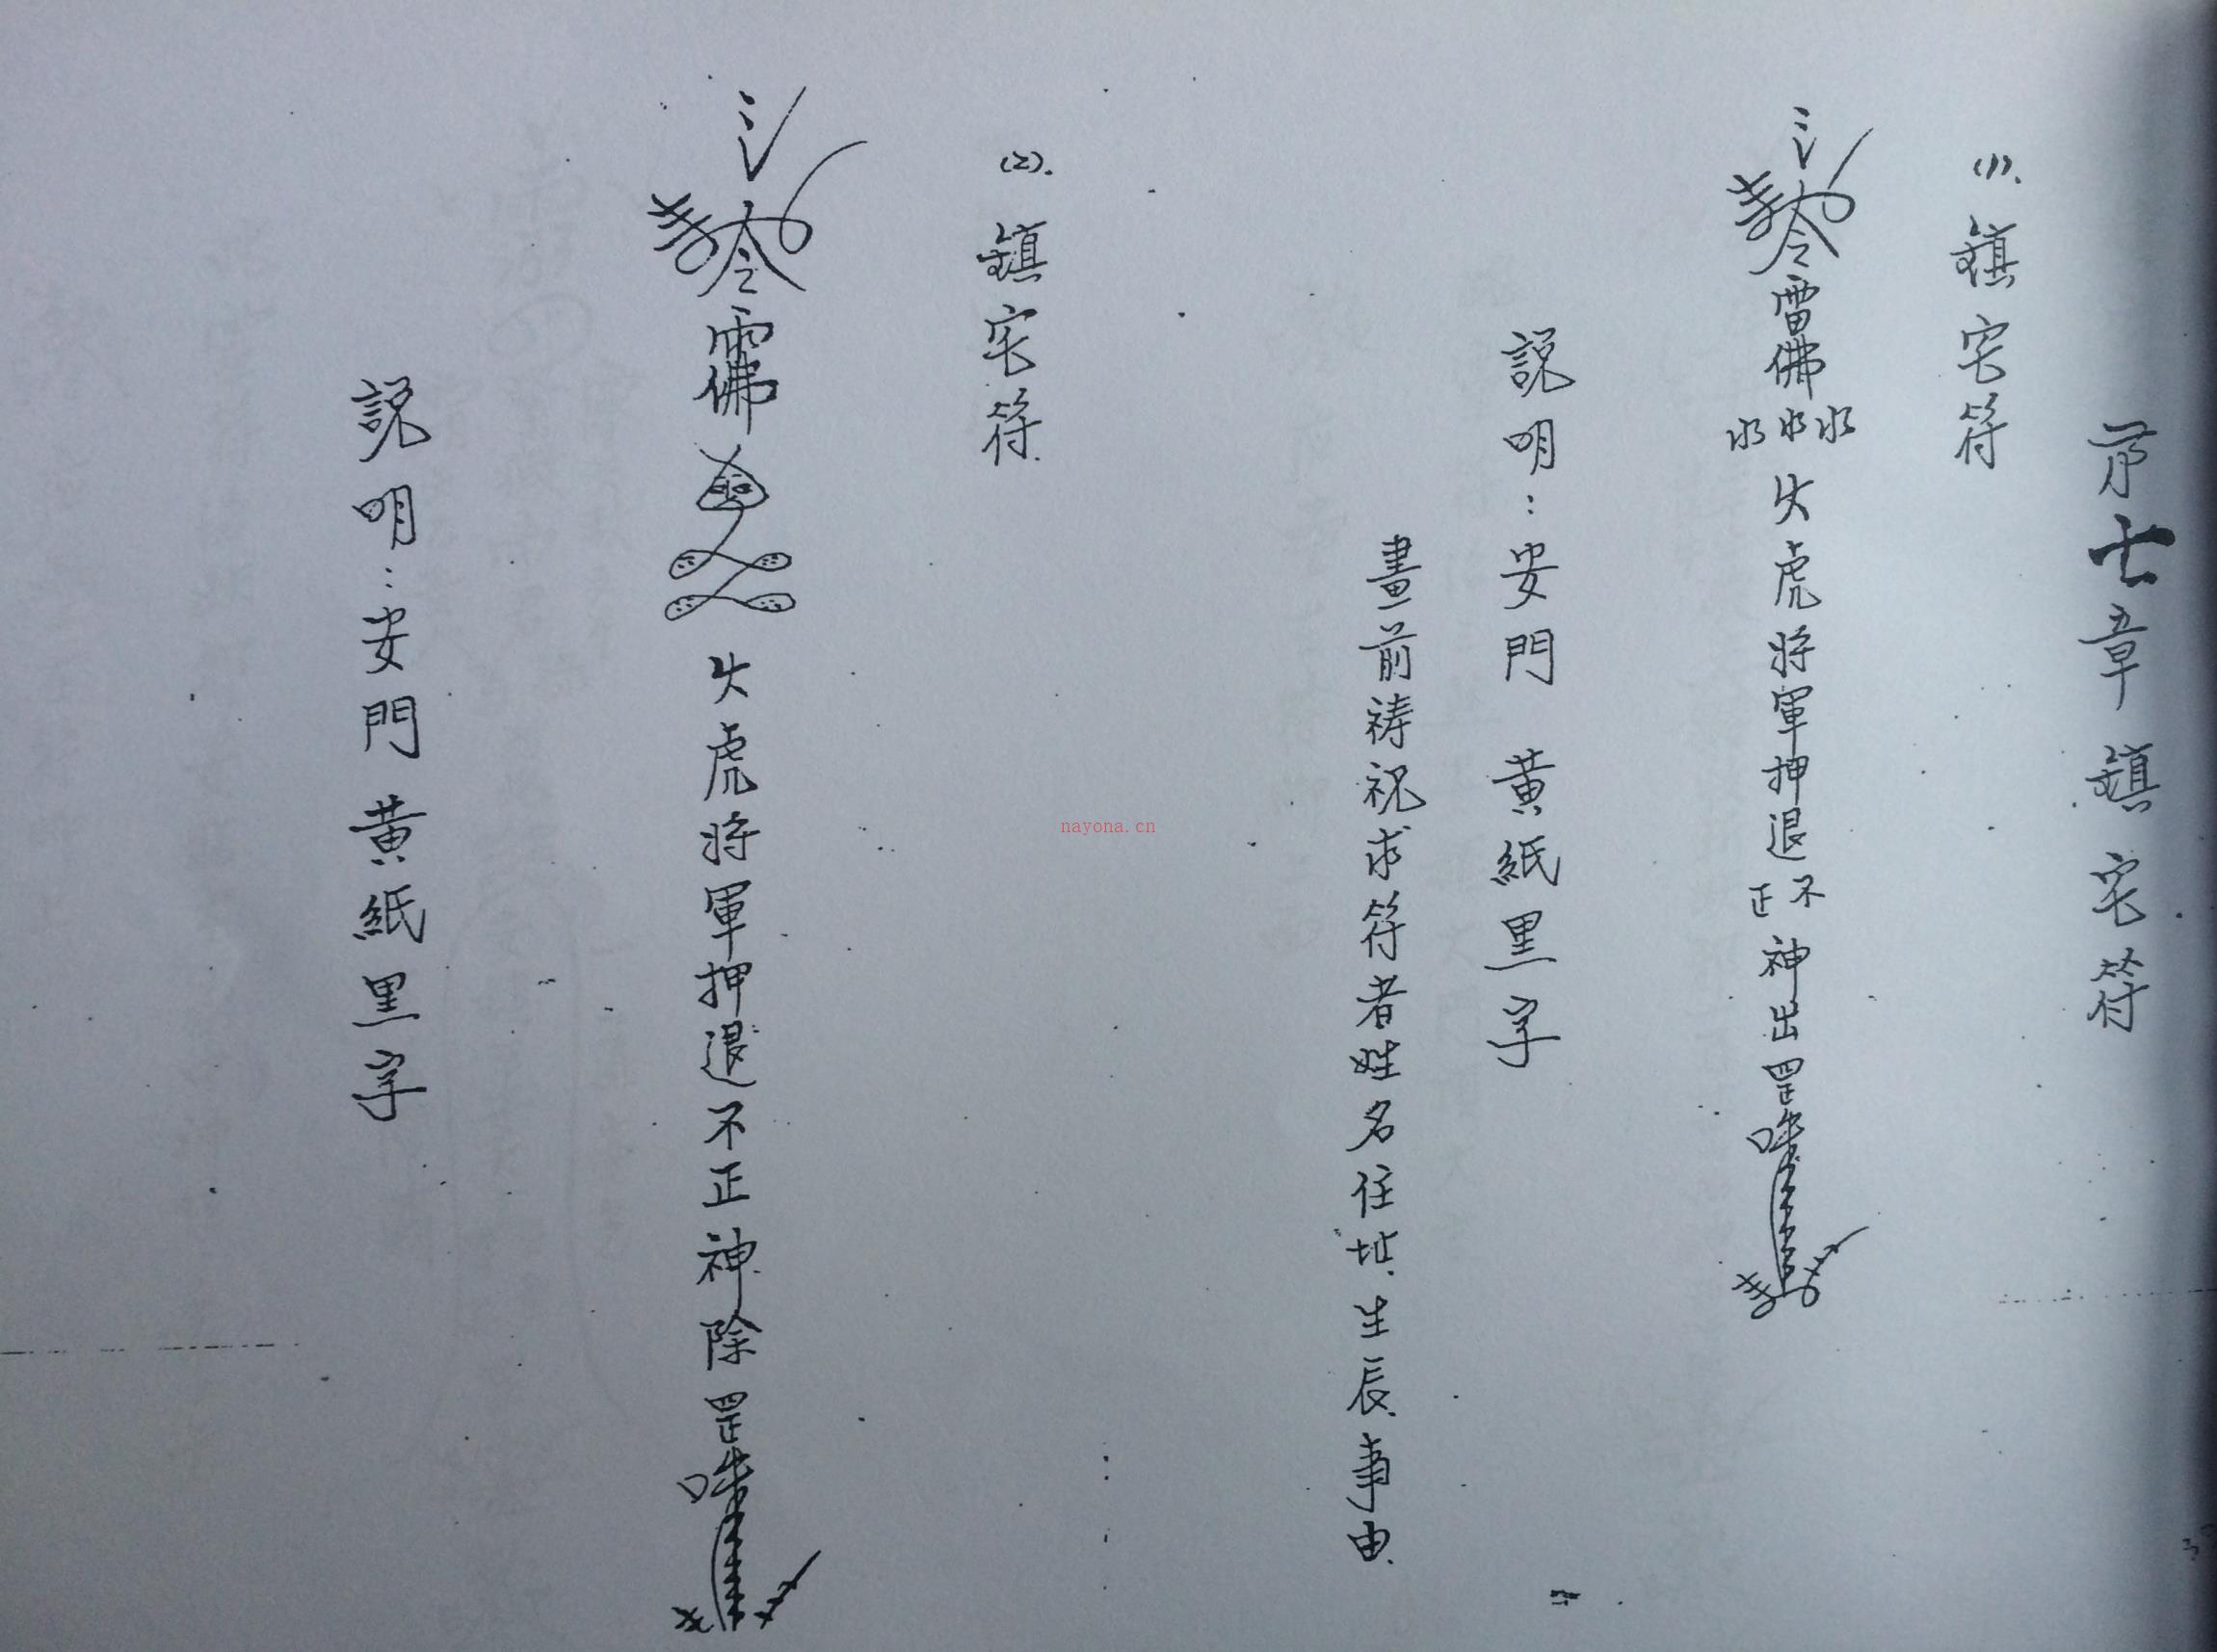 第七章 鎮宅符
(1). 鎮宅符
令雷佛水水水火虎將軍押退不正神出罡
説明：安門 黃紙黑字
畫前祷祝求符者姓名住址.生辰.事由.
(2). 鎮宅符.
令雨佛 火虎將軍押退不正神除罡
説明：安門黃紙黑字
nayona.cn